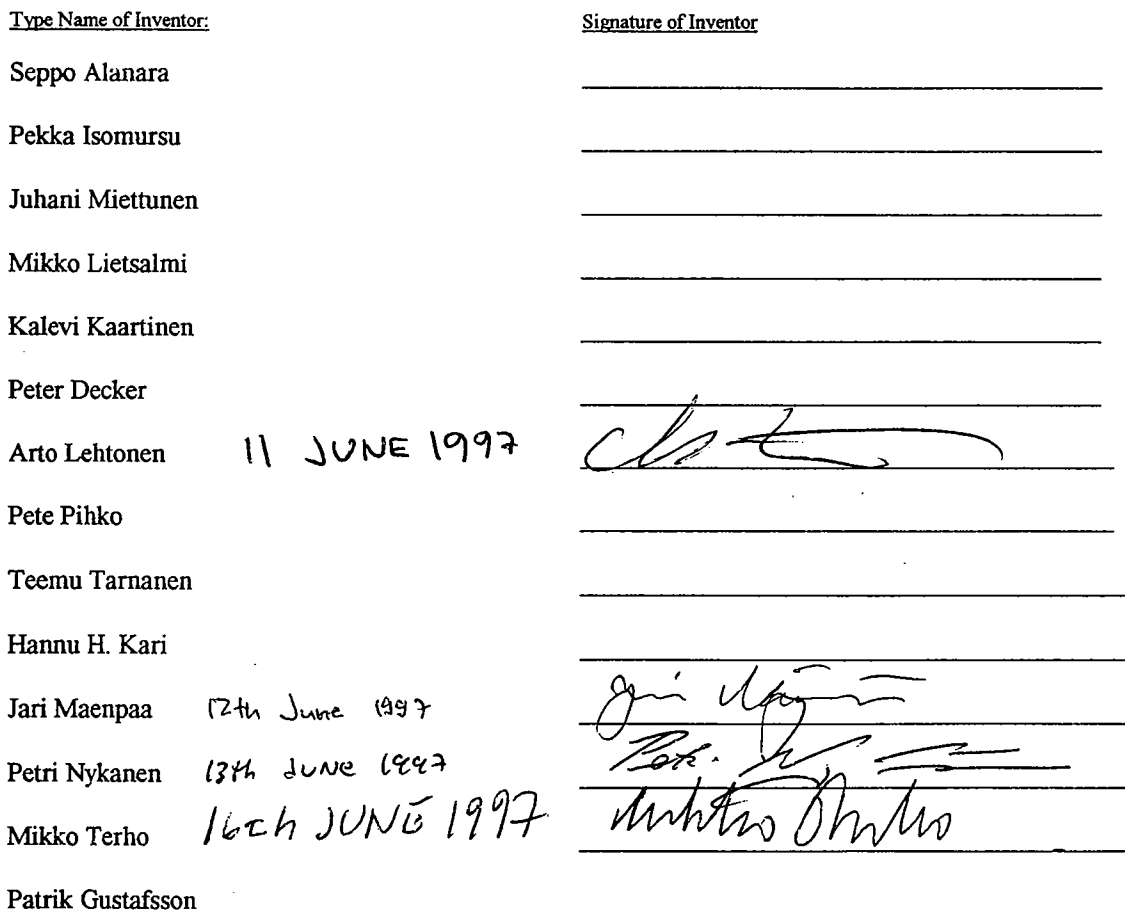 Type Name of Inventor: Signature of Inventor
Seppo Alanara
Pekka Isomursu
Juhani Miettunen
Mikko Lietsalmi
Kalevi Kaartinen
Peter Decker
Arto Lehtonen 11 JUNE 1997
Pete Pihko
Teemu Tarnanen
Hannu H. Kari
Jari Maenpaa 12th June 1997
Petri Nykanen 13th JUNE 1997
Mikko Terho 16th JUNE 1997
Patrik Gustafsson